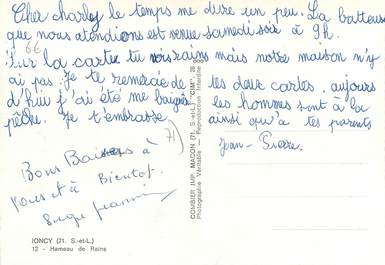 Cher charly le temps me dure un peu. La batteuse
que nous attendions est venue samedi soir à 9h.
66
Sur la carte tu vois rains mais notre maison n'y
ai pas. Je te remercie de tes deux cartes. aujours
d'hui j'ai été me baigner les hommes sont à la
pêche. Je t'embrasse ainsi qu'a tes parents
Jean-Pierre.
Bons Baisers à
vous et à Bientot.
71)
COMBIER IMP. MACON (71. S.-et-L.) "CIM"
Photographie Véritable — Reproduction Interdite
JONCY (71. S.-et-L.)
12 - Hameau de Rains